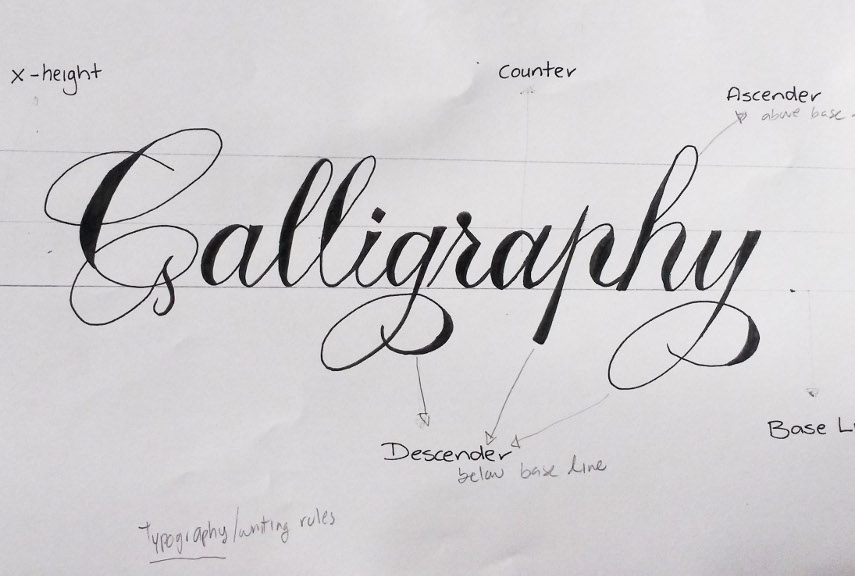 x-height
Counter
Ascender
above base
Calligraphy
Descender
below base line
Base L
Typography/writing rules